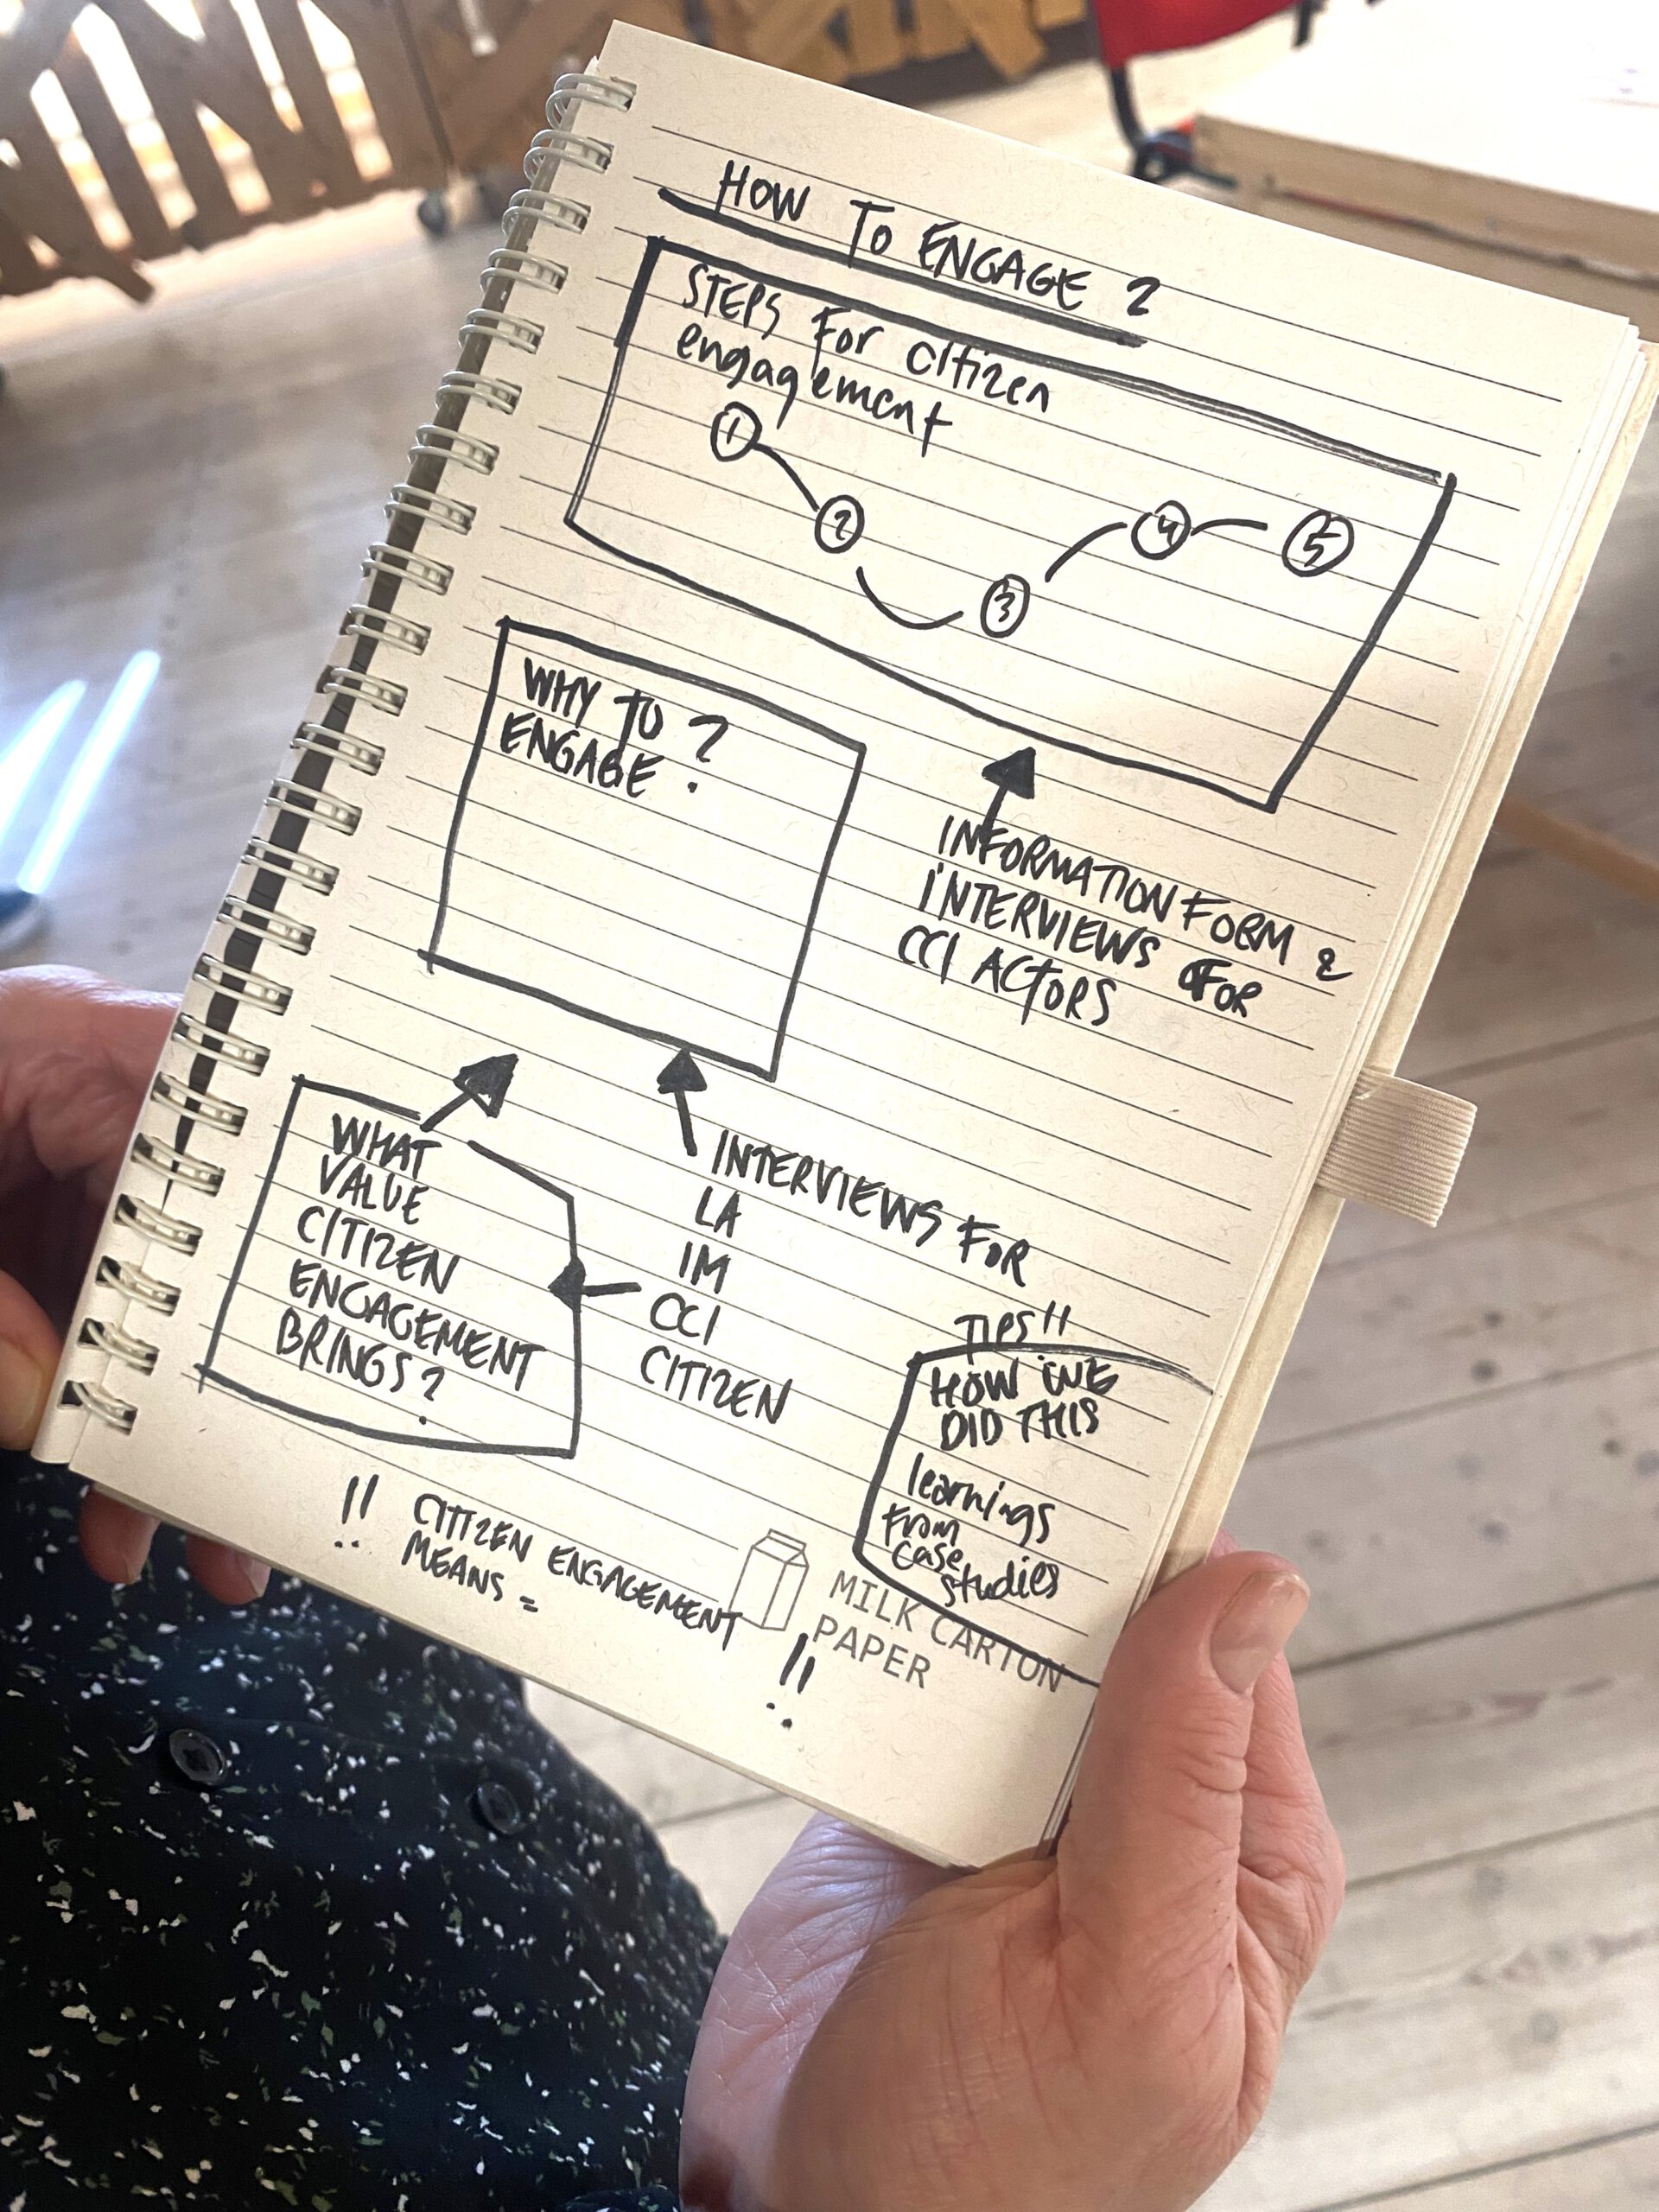 HOW TO ENGAGE ?
STEPS For citizen
engagement
1
2
3
4
5
WHY TO
ENGAGE ?
INFORMATION FORM &
INTERVIEWS FOR
CCI ACTORS
WHAT
VALUE
CITIZEN
ENGAGEMENT
BRINGS ?
INTERVIEWS FOR
LA
IM
CCI
CITIZEN
TIPS!!
HOW WE
DID THIS
learnings
From
case
studies
!! CITIZEN ENGAGEMENT
MEANS = !!
MILK CARTON
PAPER